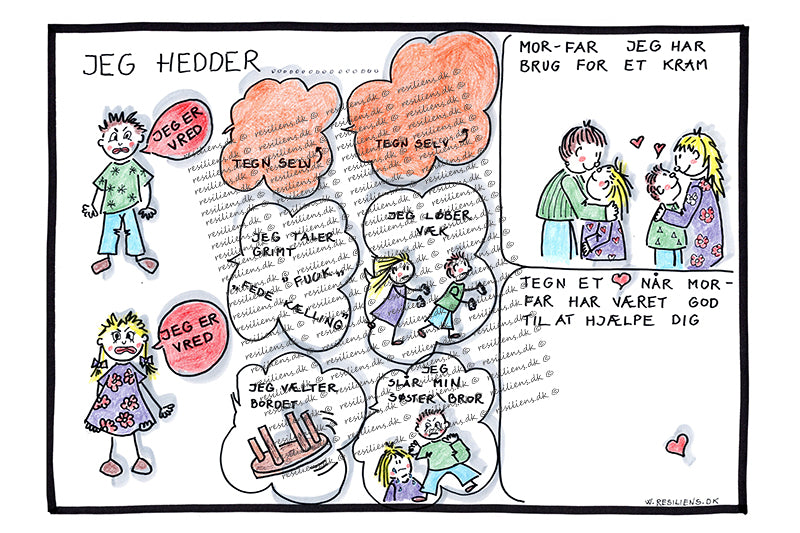 JEG HEDDER...................
JEG ER
VRED
TEGN SELV
TEGN SELV
JEG TALER
GRIMT
"FUCK"
"FEDE KÆLLING"
JEG LØBER
VÆK
JEG ER
VRED
JEG VÆLTER
BORDET
JEG
SLÅR MIN
SØSTER/BROR
MOR-FAR JEG HAR
BRUG FOR ET KRAM
TEGN ET NÅR MOR-
FAR HAR VÆRET GOD
TIL AT HJÆLPE DIG
W.RESILIENS.DK
resiliens.dk ©